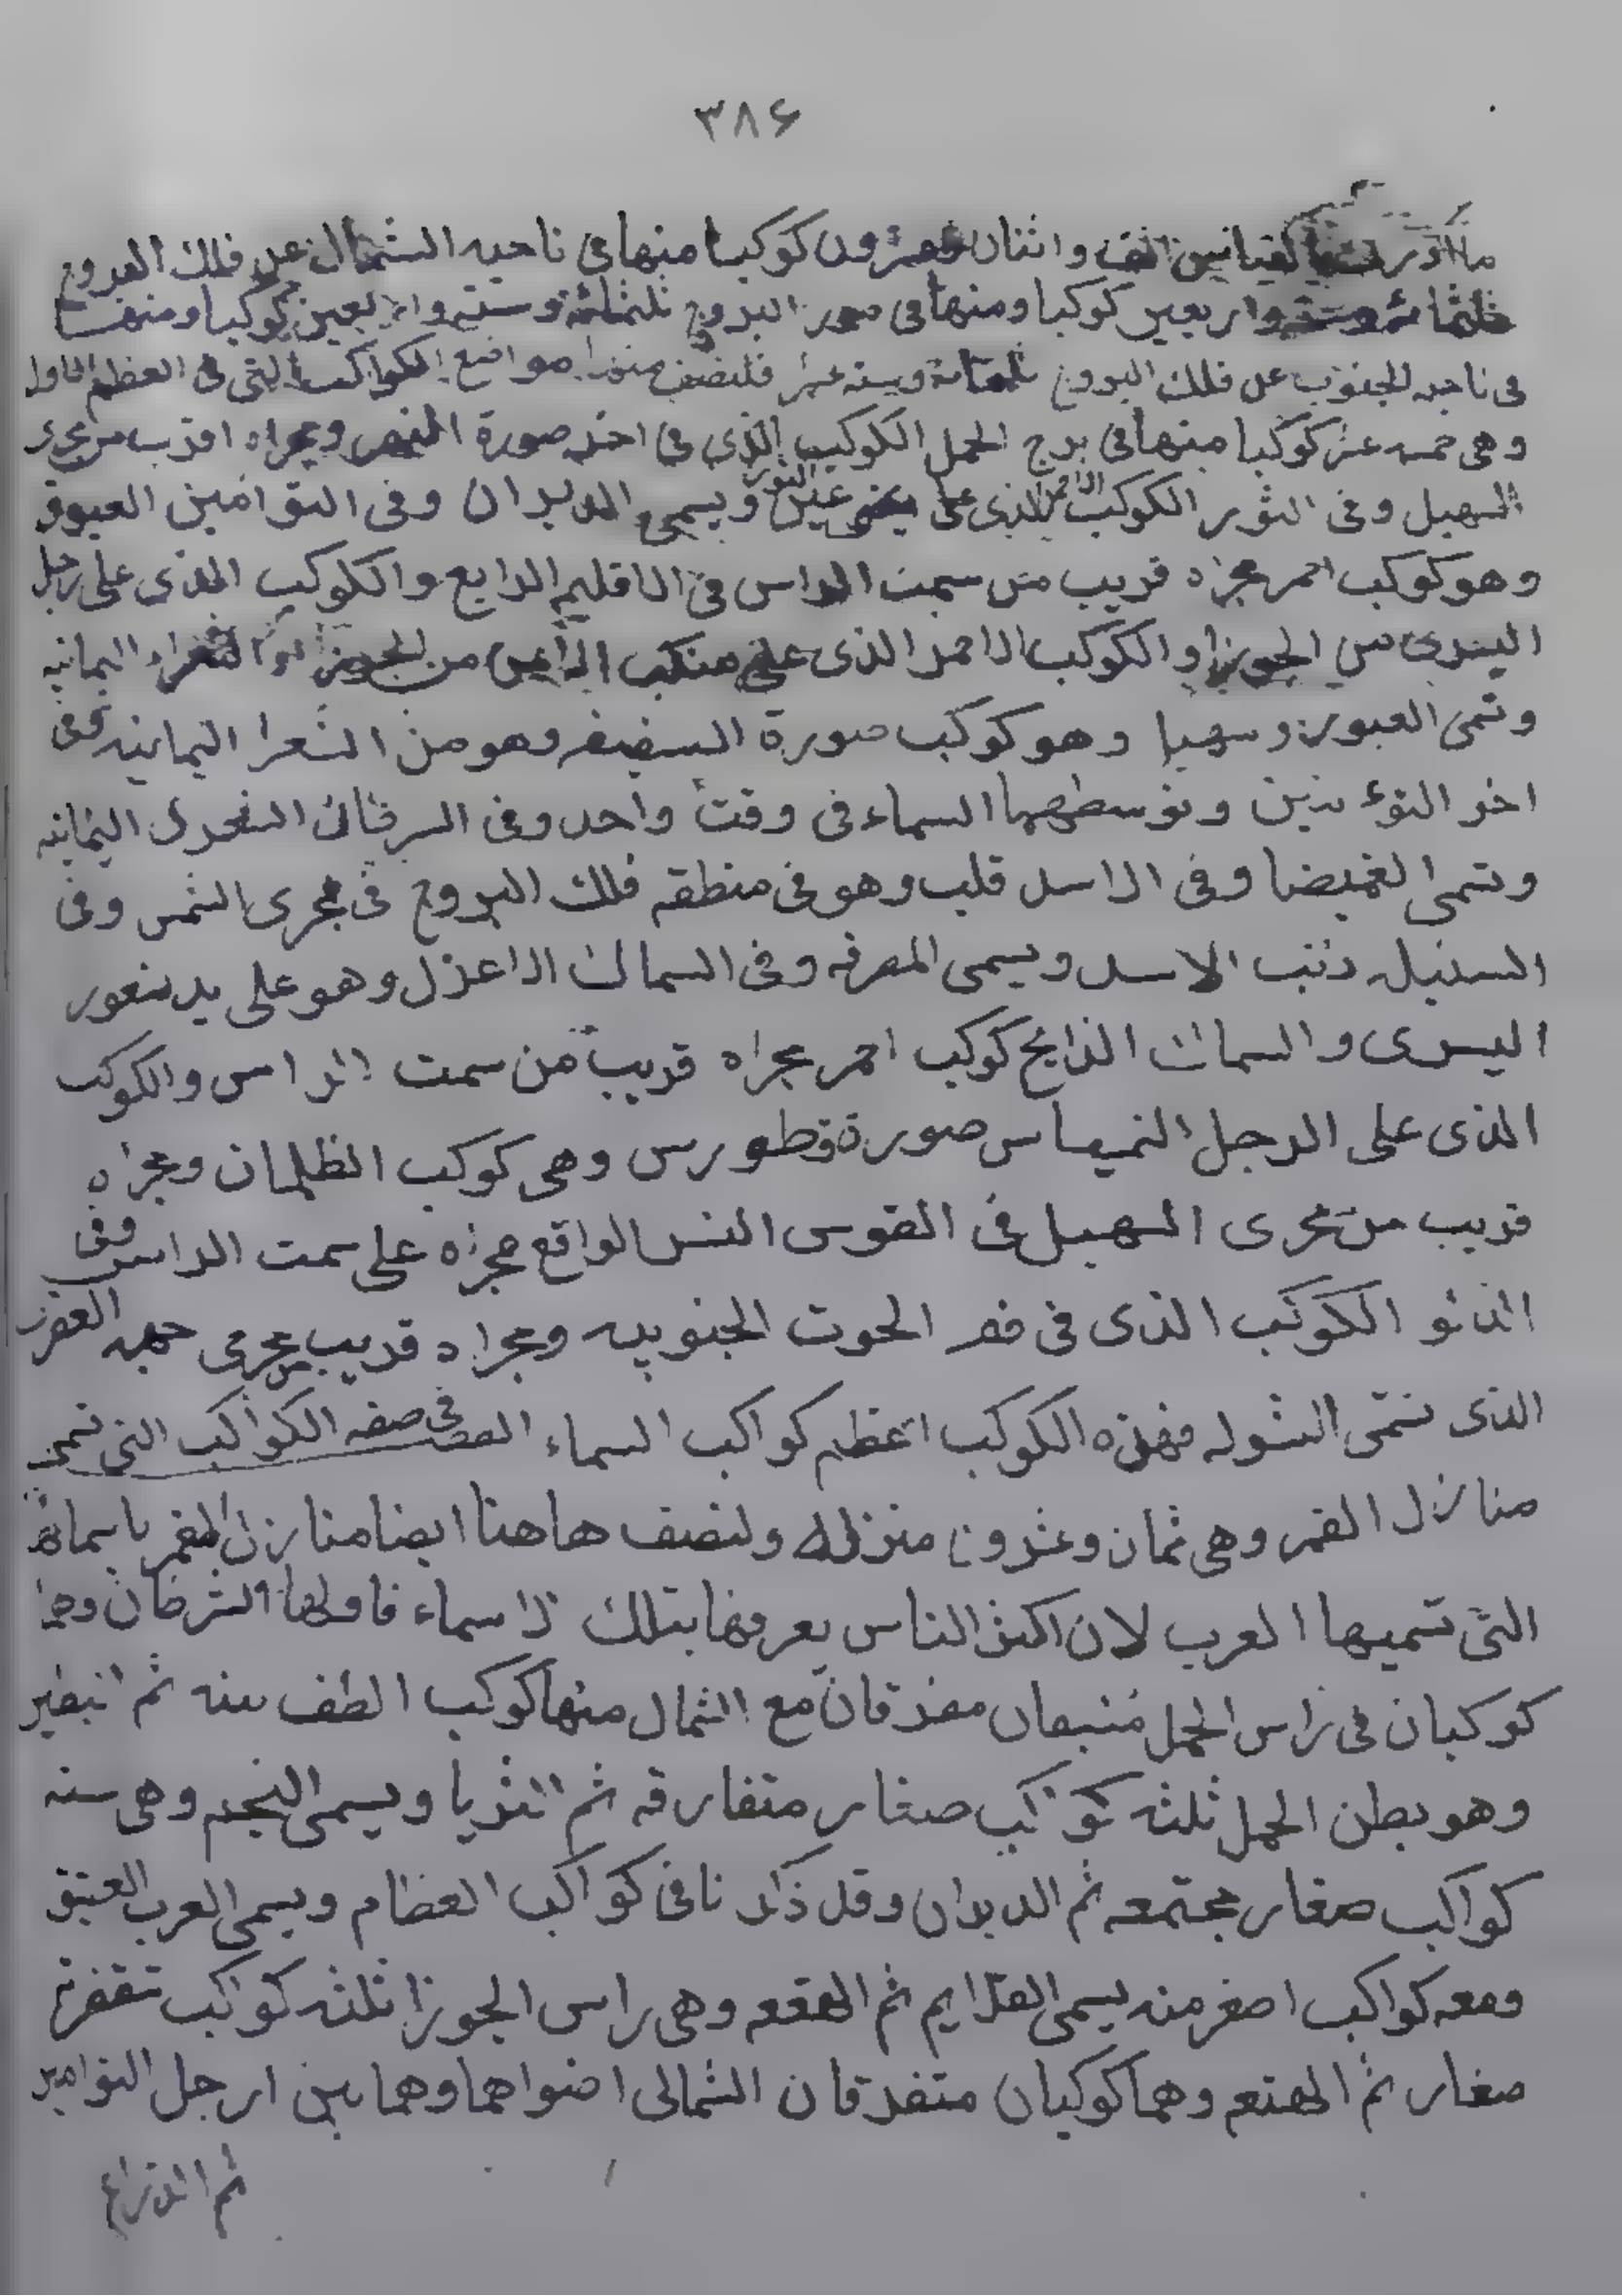 ٣٨۶
ما ادرك بالقياس الف واثنان وعشرون كوكبا منها فى ناحيه الشمال عن فلك البروج
ثلثمائه وستة واربعين كوكبا ومنها فى صور البروج ثلثمائة وستة واربعين كوكبا ومنها
فى ناحيه الجنوب عن فلك البروج ثلثمائة وسته عشر فلنصف منها مواضع الكواكب التى فى العظم الاول
وهى خمسه عشر كوكبا منها فى برج الحمل الكوكب الذى فى اخر صورة النهر ومجراه اقرب من مجرى
السهيل وفى الثور الكوكب الاحمر الذى على عين الثور ويسمى الدبران وفى التوامين العيوق
وهو كوكب احمر مجراه قريب من سمت الراس فى الاقليم الرابع والكوكب الذى على رجل
اليسرى من الجوزا والكوكب الاحمر الذى على منكب الايمن من الجوزا الشعراء اليمانيه
وتمى العبور وسهيا وهو كوكب صورة السفينه وهو من الشعرا اليمانيه وفى
اخر التوء مين وتوسطهما السماء فى وقت واحد وفى السرطان الشعرى اليمانيه
وتسمى الغميضا وفى الاسد قلبه وهو فى منطقه فلك البروج فى مجرى الشمس وفى
السنبله ذنب الاسد ويسمى الصرفه وفى السماك الاعزل وهو على يد
اليسرى والسماك الرامح كوكب احمر مجراه قريب من سمت الراس والكوكب
الذى على الرجل من صورة قطورس وهى كوكب الظلمان ومجراه
قريب من مجرى السهيل فى القوس النسر الواقع مجراه على سمت الراس وفى
الدلو الكوكب الذى فى فم الحوت الجنوبيه ومجراه قريب من مجرى حمه العقرب
الذى تسمى الشوله فهذه الكوكب اعظم كواكب السماء فى صفه الكواكب التى تسمى
منازل القمر وهى ثمان وعشرون منزله ولنصف هاهنا ايضا منازل القمر باسمائه
التى تسميها العرب لان اكثر الناس يعرفها بتلك الاسماء فاولها الشرطان وهما
كوكبان فى راس الحمل مفترقان مع الشمال منها كوكب الطف منه ثم البطين
وهو بطن الحمل ثلثه كواكب صغار متفارقه ثم الثريا ويسمى النجم وهى سته
كواكب صغار مجتمعه ثم الدبران وقد ذكرنا فى كواكب العظام ويسمى العرب العتيق
ومعه كواكب اصغر منه يسمى القلايم ثم الهقعه وهى راس الجوزا ثلثه كواكب
صغار ثم الهنعه وهما كوكبان متفرقان الشمالى اضواهما وهما بين ارجل التوامين
ثم الذراع